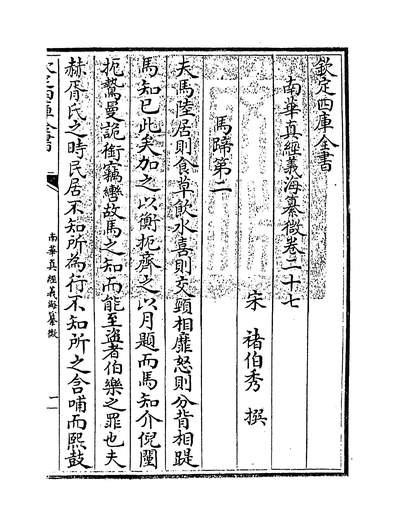 欽定四庫全書
南華真經義海纂微卷二十七
宋 褚伯秀 撰
馬蹄第二
夫馬陸居則食草飲水喜則交頸相靡怒則分背相踶
馬知已此矣加之以衡扼齊之以月題而馬知介倪闉
扼鷙曼詭銜竊轡故馬之知而能至盜者伯樂之罪也夫
赫胥氏之時民居不知所為行不知所之含哺而熙鼓
欽定四庫全書
南華真經義海纂微